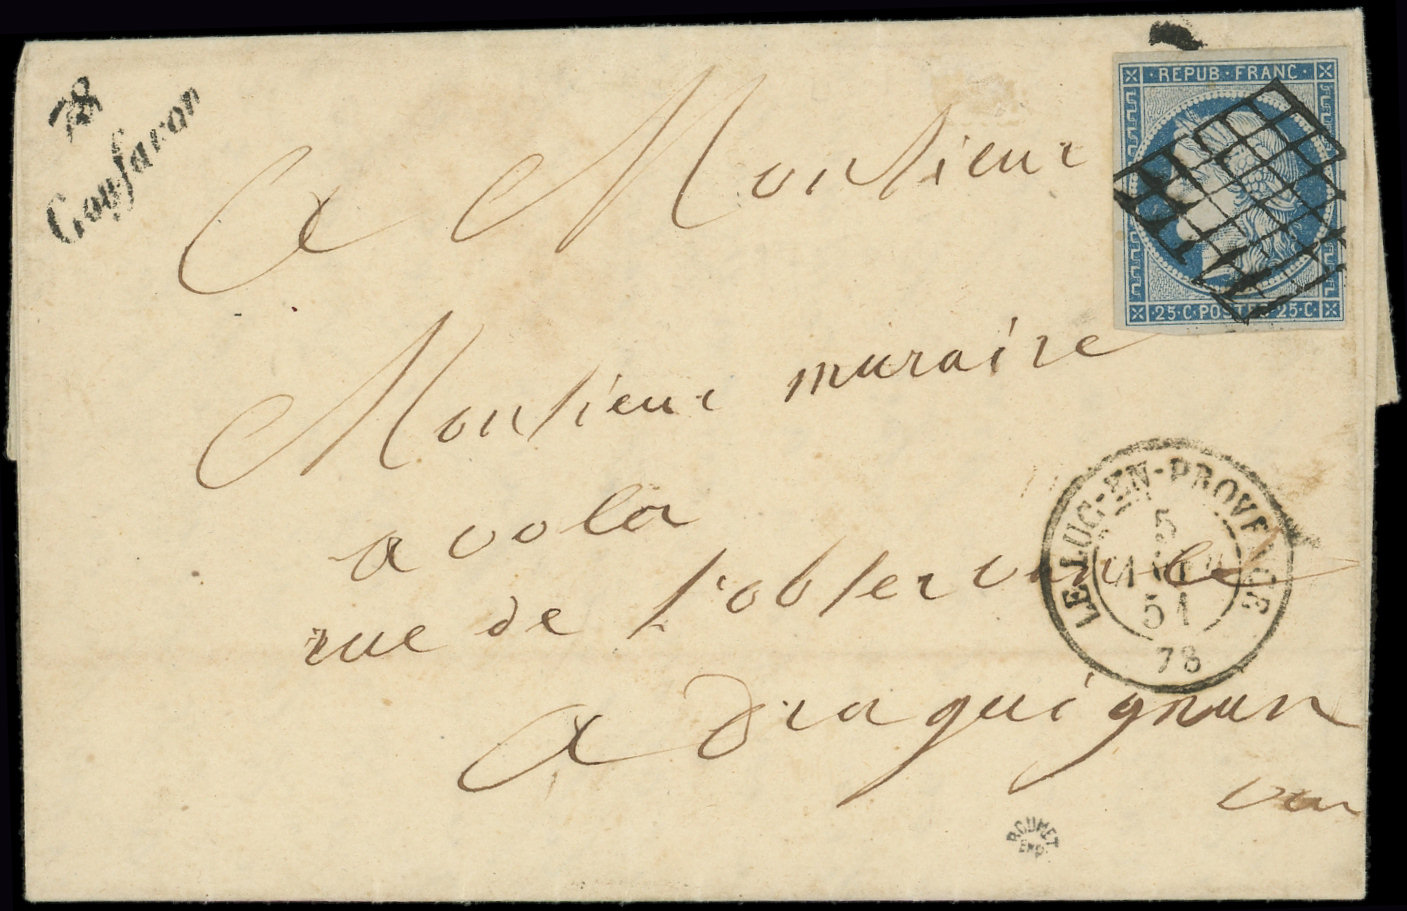 78
Gonfaron
REPUB·FRANC
25·C·POSTES·25·C
A Monsieur
Monsieur muraire
avola
rue de l'observance
A draguignan
var
LE-LUC-EN-PROVENCE
5
51
78
ROUMET
EXP